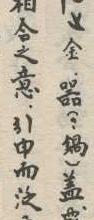 金器(?鍋)蓋
相合之意;引申而没